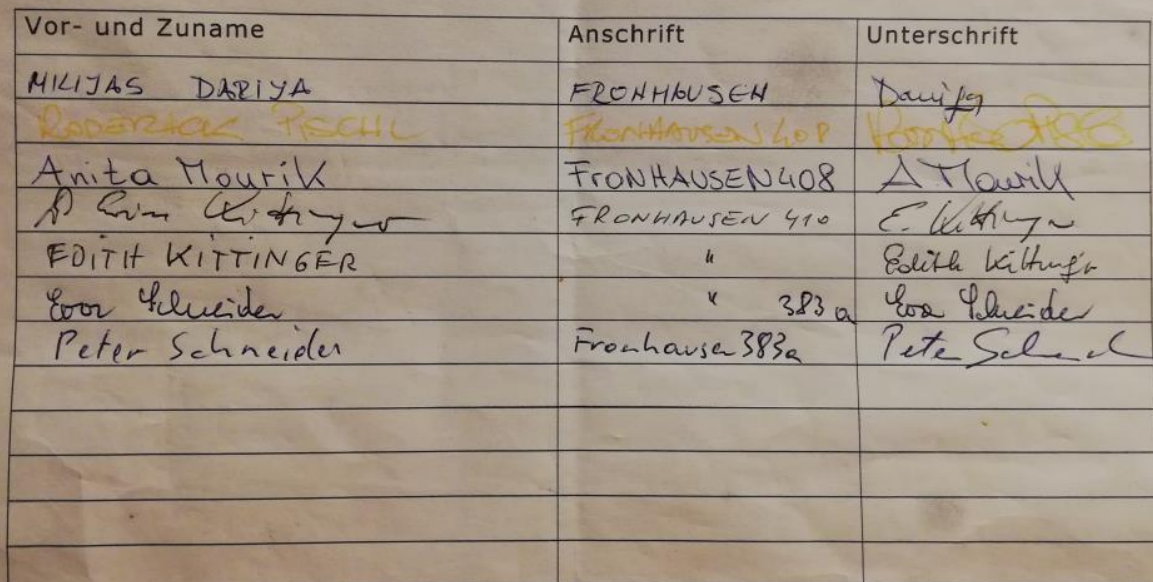 Vor- und Zuname Anschrift Unterschrift
MILIJAS DARIYA FRONHAUSEN
RODERICK PISCHL FRONHAUSEN 408
Anita Mourik FRONHAUSEN 408 A Mourik
Kittinger FRONHAUSEN 410 E. Kittinger
EDITH KITTINGER " Edith Kittinger
Eva Schneider " 383a Eva Schneider
Peter Schneider Fronhausen 383a Peter